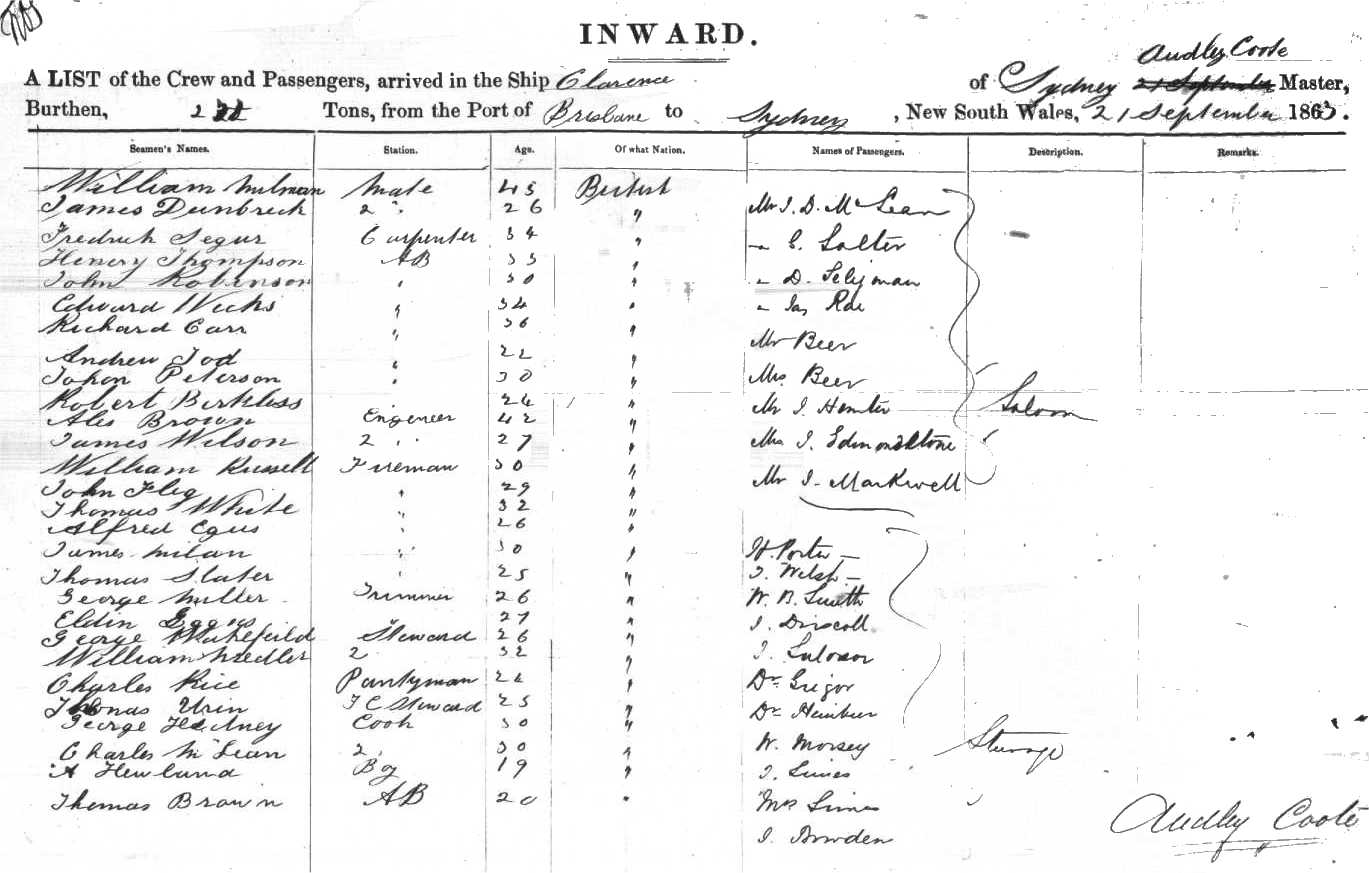 INWARD.
Audley Coote
A LIST of the Crew and Passengers, arrived in the Ship Clarence of Sydney 21 September Master,
Burthen, Tons, from the Port of Brisbane to Sydney, New South Wales, 21 September 1863.
Seamen's Names. Station. Age. Of what Nation. Names of Passengers. Description. Remarks.
William Milman Mate 45
James Dunbreck 2 " 26 " Mr J. D. McLean
Fredrick Segur Carpenter 34 " " C. Salter
Henery Thompson AB 33 "
John Robinson " 30 " " D.
Edward Wicks " 34 " " Jas Rae
Richard Carr " 36 "
Mr Beer
Andrew Tod " 22 "
John Peterson " 30 " Mrs Beer
Robert Birkless 24 "
Alex Brown Engeneer 42 " Mr J. Hunter Saloon
James Wilson 2 " 27 " Mrs J. Edmondstone
William Russell Fireman 30 "
John Fleg " 29 " Mr J. Markwell
Thomas White " 32 "
Alfred Egus " 26 "
James Milan " 30 " H. Porter
Thomas Slater " 25 " J. Welsh
George Miller Trimmer 26 " W. B. Smith
Eldin 27 " J. Driscoll
George Wakefeild Steward 26 "
William Niedler 2 32 " J.
Charles Rice Pantyman 24 " Dr Grigor
Thomas Urin F C Steward 25 " Dr
George Cook 30 "
Charles McLean 2 " 30 " W. Morsey Steerage
A Hewland Boy 19 " J. Simes
Thomas Brown AB 20 " Mrs Simes
Audley Coote
J. Bowden